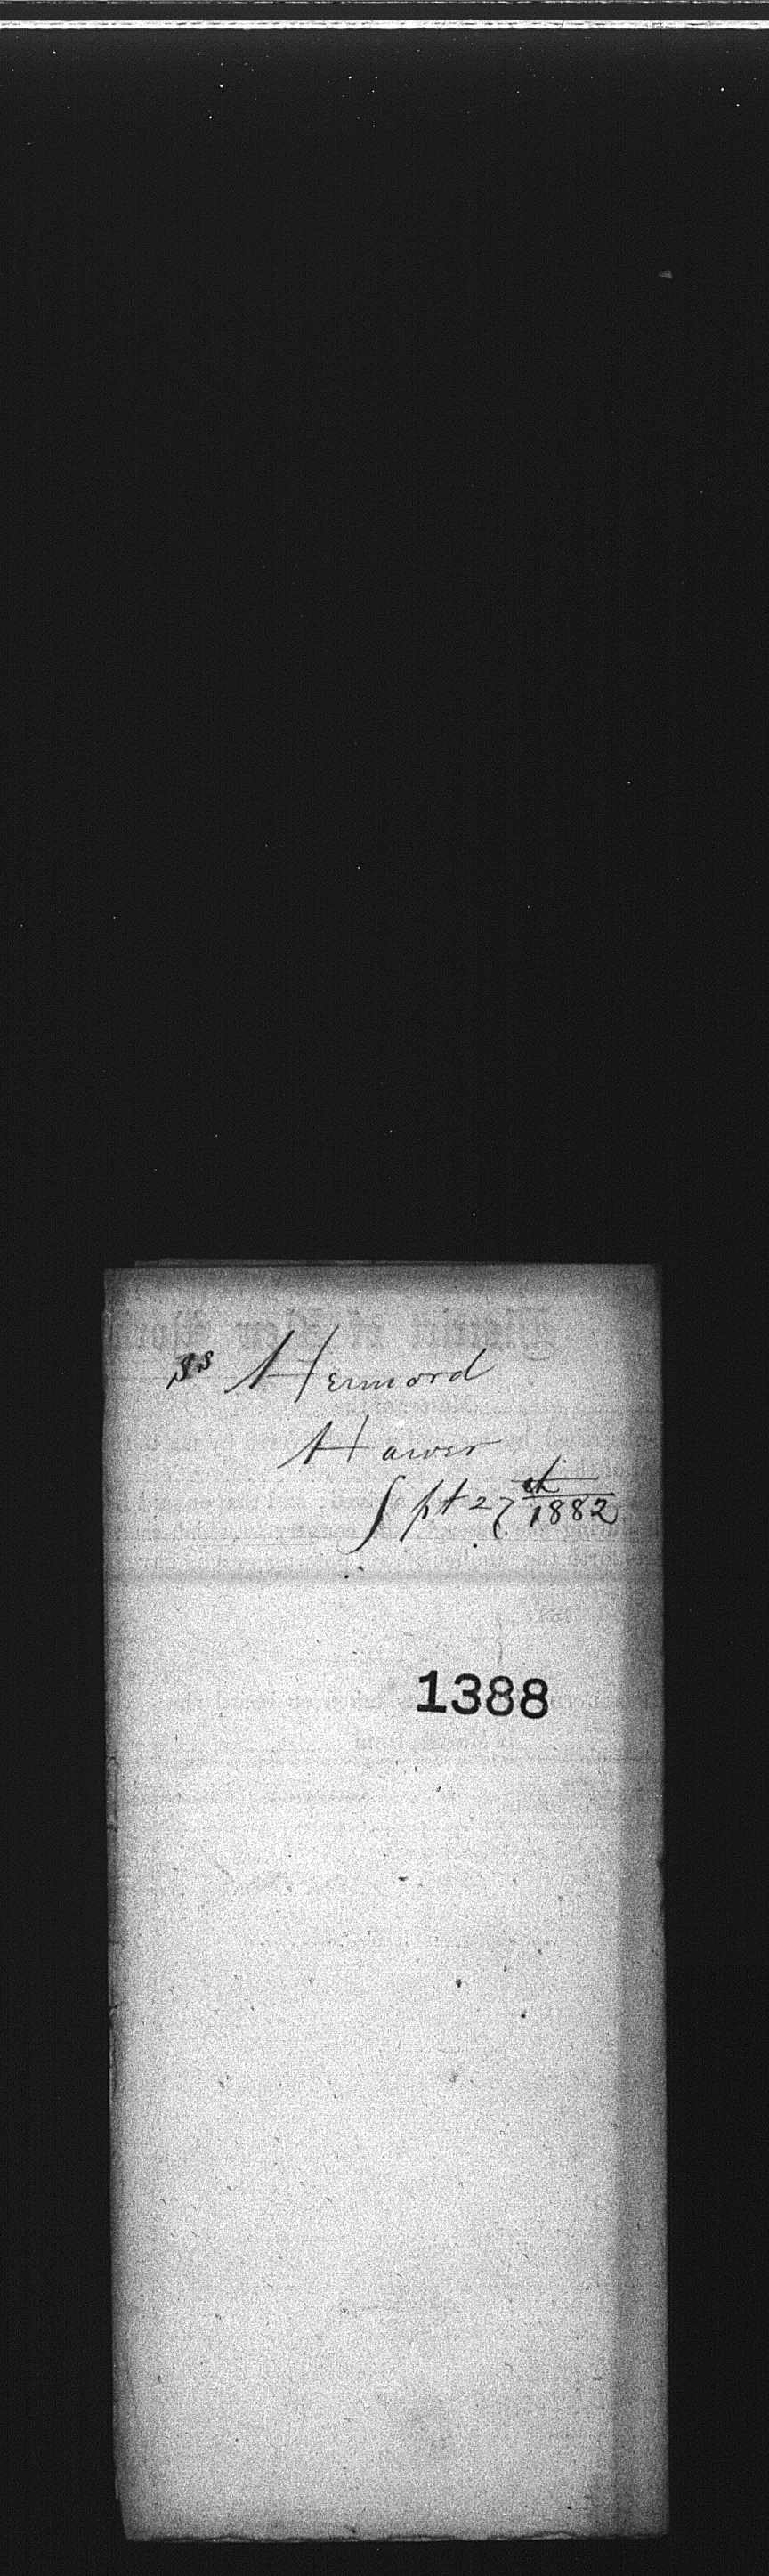 SS Hermord
Hawer
Spt 27th 1882
1388